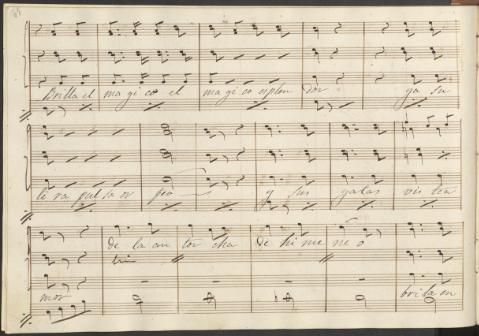 Brilla el magico el magico esplendor ya su
lira pulsa or feo y sus galas vis ten
de la an tor cha de hi me ne o
mor brilla en